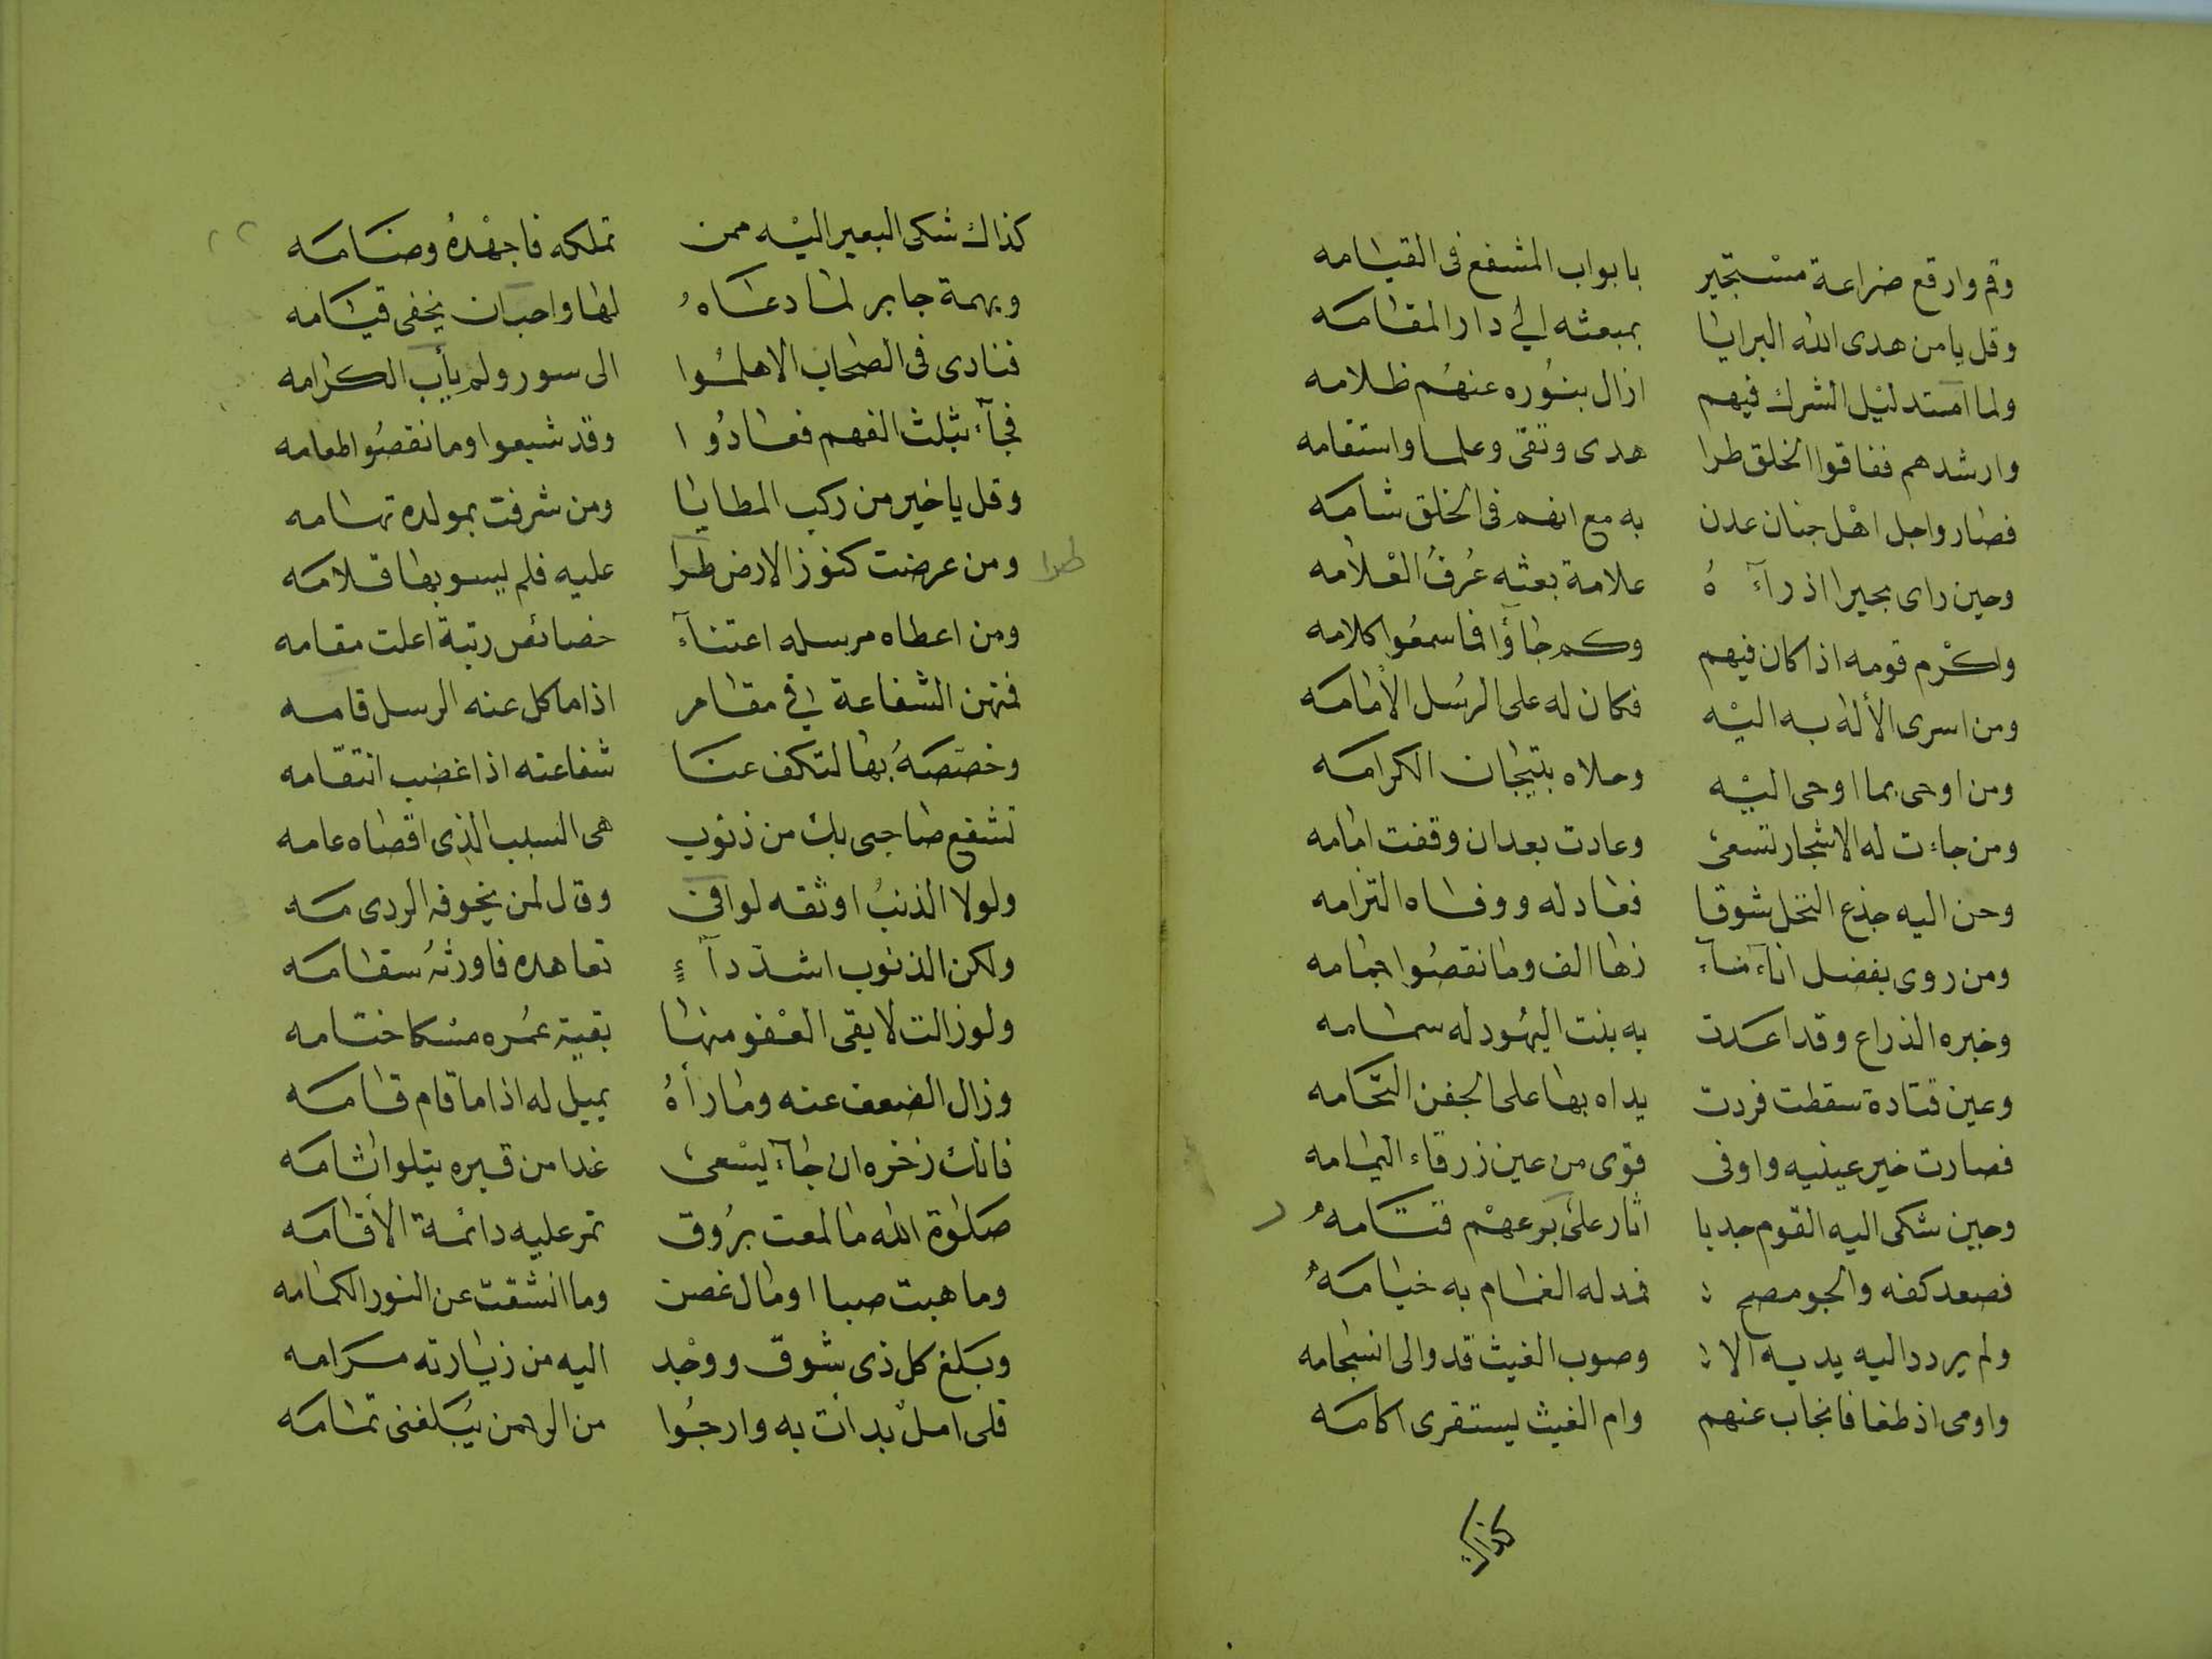 وقم وارقع ضراعة مستجير بابواب المشفع فى القيامه
وقل يا من هدى الله البرايا بمبعثه الى دار المقامه
ولما امتد ليل الشرك فيهم ازال بنوره عنهم ظلامه
وارشدهم ففاقوا الخلق طرا هدى وتقى وعلما واستقامه
فصار واجل اهل جنان عدن به مع انهم فى الخلق شامه
وحين راى بحيرا اذ رآءه علامة بعثه عُرفُ العلامه
واكرم قومه اذ كان فيهم وكم جاؤا فما سمعوا كلامه
ومن اسرى الأله به اليه فكان له على الرسل الأمامه
ومن اوحى بما اوحى اليه وحلاه بتيجان الكرامه
ومن جاءت له الاشجار تسعى وعادت بعد ان وقفت امامه
وحن اليه جذع النخل شوقا فعاد له ووفاه التزامه
ومن روى بفضل اناء ماء زها الف وما نقصوا جمامه
وخبره الذراع وقد اعدت به بنت اليهود له سمامه
وعين قتادة سقطت فردت يداه بها على الجفن التحامه
فصارت خير عينيه واوفى قوى من عين زرقاء اليمامه
وحين شكى اليه القوم جدبا اثار على ربوعهم قتامه
فصعد كفه والجو مصح فمد له الغمام به خيامه
ولم يردد اليه يديه الا وصوب الغيث قد والى انسجامه
واومى اذ طغا فانجاب عنهم وام الغيث يستقرى اكامه
كذاك
كذاك شكى البعير اليه ممن تملكه فاجهده وضامه
وبهمة جابر لما دعاه لها واحبان يخفى قيامه
فنادى فى الصحاب الا هلموا الى سور ولم يأب الكرامه
فجآء بثلث الفهم فعادوا وقد شبعوا وما نقصوا طعامه
وقل يا خير من ركب المطايا ومن شرفت بمولده تهامه
ومن عرضت كنوز الارض طرا عليه فلم يسو بها قلامه
طرا
ومن اعطاه مرسله اعتنآء خصائص رتبة اعلت مقامه
فمنهن الشفاعة فى مقام اذا ما كل عنه الرسل قامه
وخصصه بها لتكف عنا شفاعته اذا غضب انتقامه
تشفع صاحبى بك من ذنوب هى السبب الذى اقصاه عامه
ولولا الذنب اوثقه لوافى وقال لمن يخوفه الردى مه
ولكن الذنوب اشد دآءٍ تعاهده فاورثه سقامه
ولو زالت لا يقى العفو منها بقية عمره مسكا ختامه
وزال الضعف عنه وما رأه يميل له اذا ما قام قامه
فانك ذخره ان جآء يسعى غدا من قبره يتلوا ثامه
صلوة الله ما لمعت بروق تمر عليه دائمة الأقامه
وما هبت صبا او مال غصن وما انشقت عن النور الكمامه
وبلغ كل ذى شوق ووجد اليه من زيارته مرامه
فلى امل بدأت به وارجوا من الرحمن يبلغنى تمامه